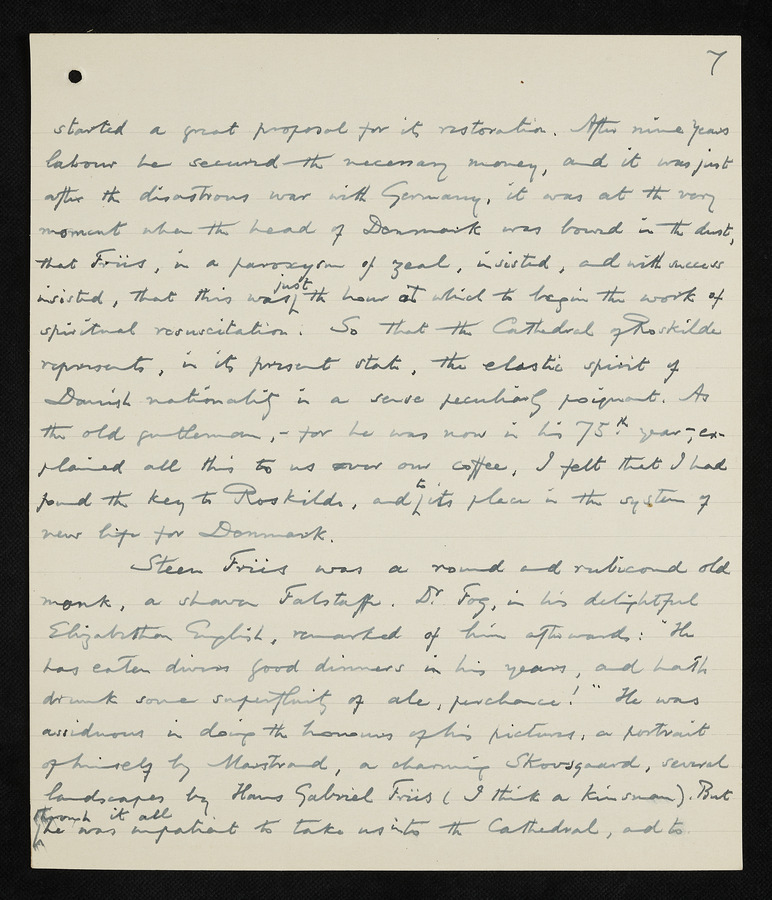 7
started a great proposal for its restoration. After nine years
labour he secured the necessary money, and it was just
after the disastrous war with Germany, it was at the very
moment when the head of Denmark was bowed in the dust,
that Friis, in a paroxysm of zeal, insisted, and with success
insisted, that this was just the hour at which to begin the work of
spiritual resuscitation. So that the Cathedral of Roskilde
represents, in its present state, the elastic spirit of
Danish nationality in a sense peculiarly poignant. As
the old gentleman, – for he was now in his 75th year –, ex-
plained all this to us over our coffee, I felt that I had
found the key to Roskilde, and to its place in the system of
new life for Denmark.
Steen Friis was a round and rubicond old
monk, a shaven Falstaff. Dr Fog, in his delightful
Elizabethan English, remarked of him afterwards: "He
has eaten divers good dinners in his years, and hath
drunk some superfluity of ale, perchance!" He was
assiduous in doing the honours of his pictures, a portrait
of himself by Marstrand, a charming Skovsgaard, several
landscapes by Hans Gabriel Friis (I think a kinsman). But
through it all
he was impatient to take us into the Cathedral, and to